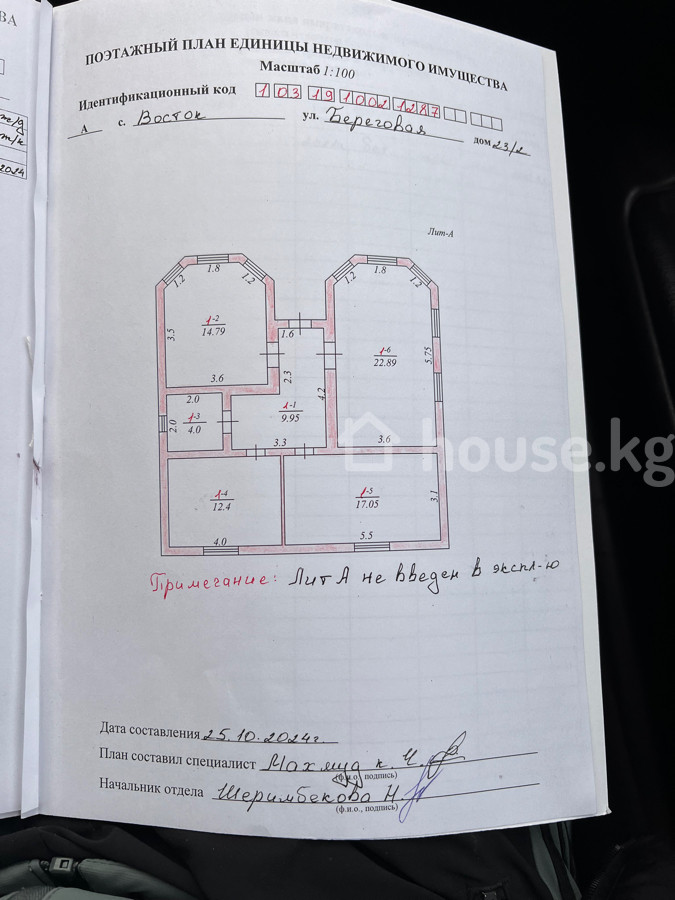 ВА
ПОЭТАЖНЫЙ ПЛАН ЕДИНИЦЫ НЕДВИЖИМОГО ИМУЩЕСТВА
Масштаб 1:100
Идентификационный код 1 03 19 1002 1287
А с. Восток ул. Береговая дом 23/2
2024
Лит-А
1.2 1.8 1.2
1.2 1.8 1.2
3.5
1-2
14.79
1.6
1-6
22.89
5.75
3.6
2.3
4.2
2.0
2.0
1-3
4.0
1-1
9.95
3.3
3.6
house.kg
1-4
12.4
1-5
17.05
3.1
4.0
5.5
Примечание: Лит А не введен в экспл-ю
Дата составления 25.10.2024г.
План составил специалист Махмуд к. Ч.
(ф.и.о., подпись)
Начальник отдела Шеримбекова Н.
(ф.и.о., подпись)